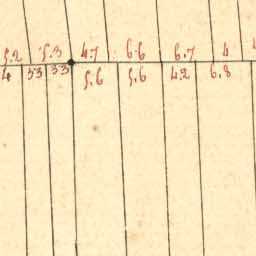 5.2 5.3 4.7 6.6 6.7 4
4 33 33 5.6 5.6 4.2 6.8